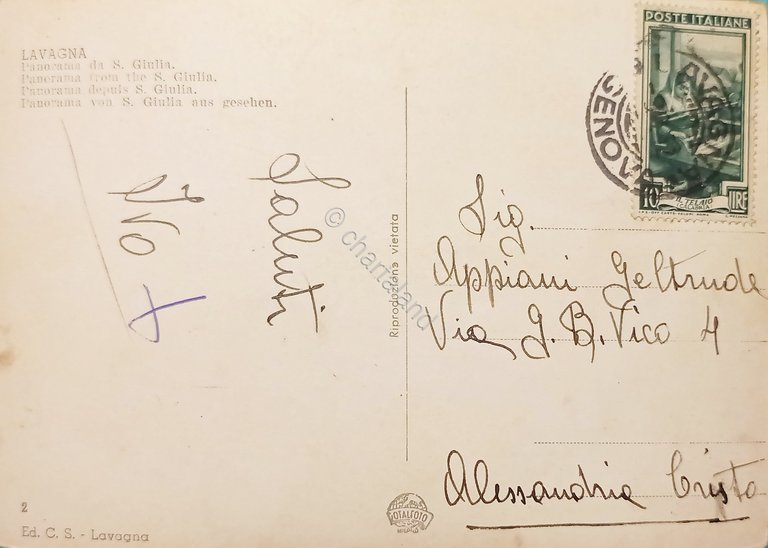 LAVAGNA
Panorama da S. Giulia.
Panorama from the S. Giulia.
Panorama depuis S. Giulia.
Panorama von S. Giulia aus gesehen.
Saluti
Ivo
2
Ed. C. S. - Lavagna
Riproduzione vietata
© chartaland
TOTALFOTO
MILANO
POSTE ITALIANE
10 LIRE
IL TELAIO
(CALABRIA)
LAVAGNA
GENOVA
Sig.
Appiani Geltrude
Via G. B. Vico 4
Alessandria Cristo